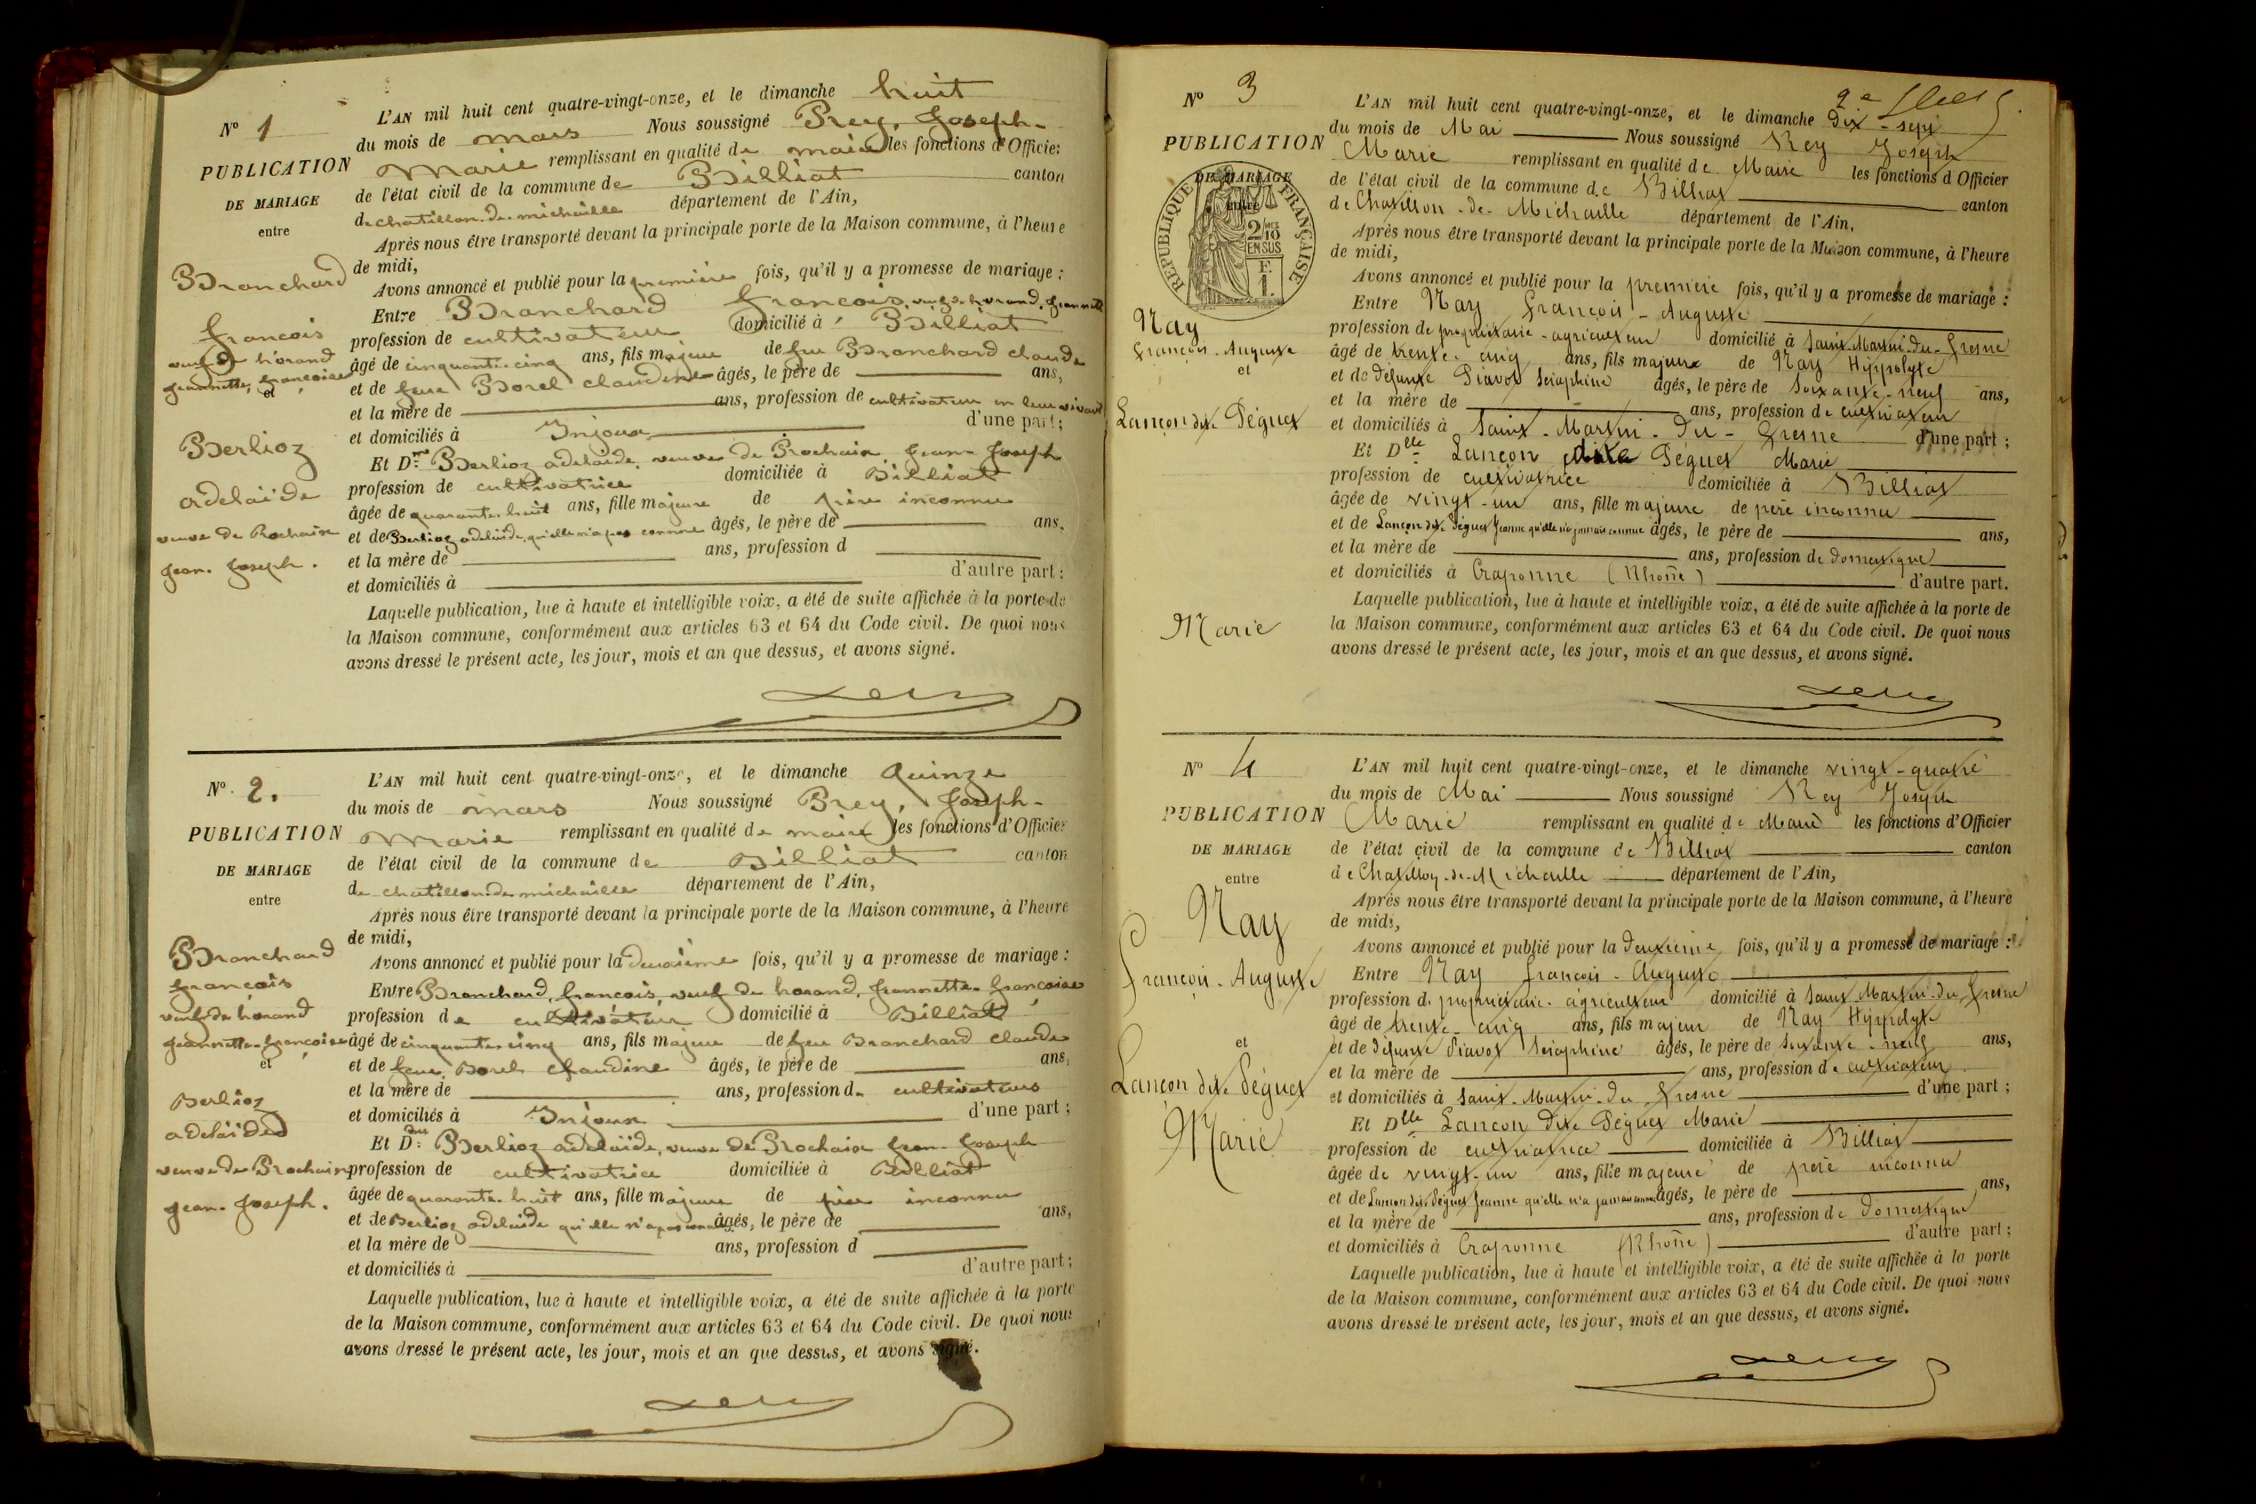 N° 1
PUBLICATION
DE MARIAGE
entre
Branchard
françois
veuf de horand
jeannette, françoise
et
Berlioz
adelaïde
veuve de Prochaix
jean. joseph.
L'AN mil huit cent quatre-vingt-onze, et le dimanche huit
du mois de mars Nous soussigné Rey, Joseph-
Marie remplissant en qualité de maire les fonctions d'Officier
de l'état civil de la commune de Billiat canton
de chatillon-de-michaille département de l'Ain,
Après nous être transporté devant la principale porte de la Maison commune, à l'heure
de midi,
Avons annoncé et publié pour la première fois, qu'il y a promesse de mariage :
Entre Branchard françois, veuf de horand, jeannette
profession de cultivateur domicilié à Billiat
âgé de cinquante cinq ans, fils majeur de feu Branchard claude
et de feue Borel claudine âgés, le père de ans,
et la mère de ans, profession de cultivateur en leur vivant
et domiciliés à Injoux d'une part;
Et Dme Berlioz adelaïde, veuve de Prochaix jean-Joseph
profession de cultivatrice domiciliée à Billiat
âgée de quarante huit ans, fille majeure de père inconnu
et de Berlioz adelaïde, qu'elle n'a pas connue âgés, le père de ans,
et la mère de ans, profession d
et domiciliés à d'autre part;
Laquelle publication, lue à haute et intelligible voix, a été de suite affichée à la porte de
la Maison commune, conformément aux articles 63 et 64 du Code civil. De quoi nous
avons dressé le présent acte, les jour, mois et an que dessus, et avons signé.
N° 2.
PUBLICATION
DE MARIAGE
entre
Branchard
françois
veuf de horand
jeannette-françoise
et
Berlioz
adelaïde
veuve de Prochaix
jean. Joseph.
L'AN mil huit cent quatre-vingt-onze, et le dimanche quinze
du mois de mars Nous soussigné Rey, Joseph-
Marie remplissant en qualité de maire les fonctions d'Officier
de l'état civil de la commune de Billiat canton
de chatillon-de-michaille département de l'Ain,
Après nous être transporté devant la principale porte de la Maison commune, à l'heure
de midi,
Avons annoncé et publié pour la deuxième fois, qu'il y a promesse de mariage :
Entre Branchard, françois, veuf de horand, jeannette-françoise
profession de cultivateur domicilié à Billiat
âgé de cinquante cinq ans, fils majeur de feu Branchard claude
et de feue Borel claudine âgés, le père de ans,
et la mère de ans, profession de cultivateurs
et domiciliés à Injoux d'une part;
Et Dme Berlioz adelaïde, veuve de Prochaix jean-Joseph
profession de cultivatrice domiciliée à Billiat
âgée de quarante-huit ans, fille majeure de père inconnu
et de Berlioz adelaïde qu'elle n'a pas connue âgés, le père de ans,
et la mère de ans, profession d
et domiciliés à d'autre part;
Laquelle publication, lue à haute et intelligible voix, a été de suite affichée à la porte
de la Maison commune, conformément aux articles 63 et 64 du Code civil. De quoi nous
avons dressé le présent acte, les jour, mois et an que dessus, et avons signé.
N° 3
PUBLICATION
DE MARIAGE
entre
REPUBLIQUE FRANÇAISE
2/10 EN SUS
F. 1.
Nay
François-Auguste
et
Lançon dite Péguet
Marie
2e
L'AN mil huit cent quatre-vingt-onze, et le dimanche Dix-sept
du mois de Mai Nous soussigné Rey Joseph
Marie remplissant en qualité de Maire les fonctions d'Officier
de l'état civil de la commune de Billiat canton
de Chatillon-de-Michaille département de l'Ain,
Après nous être transporté devant la principale porte de la Maison commune, à l'heure
de midi,
Avons annoncé et publié pour la première fois, qu'il y a promesse de mariage :
Entre Nay François-Auguste
profession de propriétaire-agriculteur domicilié à Saint-Martin-du-Fresne
âgé de trente-cinq ans, fils majeur de Nay Hyppolyte
et de défunte Piavot Séraphine âgés, le père de soixante-neuf ans,
et la mère de ans, profession de cultivateur
et domiciliés à Saint-Martin-du-Fresne d'une part;
Et Dlle Lançon dite Péguet Marie
profession de cultivatrice domiciliée à Billiat
âgée de vingt-un ans, fille majeure de père inconnu
et de Lançon dite Péguet Jeanne qu'elle n'a jamais connue âgés, le père de ans,
et la mère de ans, profession de domestique
et domiciliés à Craponne (Rhône) d'autre part.
Laquelle publication, lue à haute et intelligible voix, a été de suite affichée à la porte de
la Maison commune, conformément aux articles 63 et 64 du Code civil. De quoi nous
avons dressé le présent acte, les jour, mois et an que dessus, et avons signé.
N° 4
PUBLICATION
DE MARIAGE
entre
Nay
François-Auguste
et
Lançon dite Péguet
Marie
L'AN mil huit cent quatre-vingt-onze, et le dimanche vingt-quatre
du mois de Mai Nous soussigné Rey Joseph
Marie remplissant en qualité de Maire les fonctions d'Officier
de l'état civil de la commune de Billiat canton
de Chatillon-de-Michaille département de l'Ain,
Après nous être transporté devant la principale porte de la Maison commune, à l'heure
de midi,
Avons annoncé et publié pour la deuxième fois, qu'il y a promesse de mariage :
Entre Nay François-Auguste
profession de propriétaire-agriculteur domicilié à Saint-Martin-du-Fresne
âgé de trente-cinq ans, fils majeur de Nay Hyppolyte
et de défunte Piavot Séraphine âgés, le père de soixante-neuf ans,
et la mère de ans, profession de cultivateur
et domiciliés à Saint-Martin-du-Fresne d'une part;
Et Dlle Lançon dite Péguet Marie
profession de cultivatrice domiciliée à Billiat
âgée de vingt-un ans, fille majeure de père inconnu
et de Lançon dite Péguet Jeanne qu'elle n'a jamais connue âgés, le père de ans,
et la mère de ans, profession de domestique
et domiciliés à Craponne (Rhône) d'autre part;
Laquelle publication, lue à haute et intelligible voix, a été de suite affichée à la porte
de la Maison commune, conformément aux articles 63 et 64 du Code civil. De quoi nous
avons dressé le présent acte, les jour, mois et an que dessus, et avons signé.